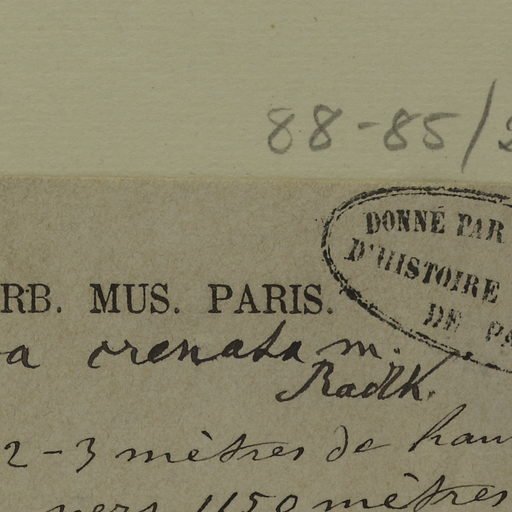 88-85/2
DONNÉ PAR
D'HISTOIRE
DE PA
RB. MUS. PARIS.
a crenata m.
Radlk.
2-3 mètres de hau
vers 1150 mètres